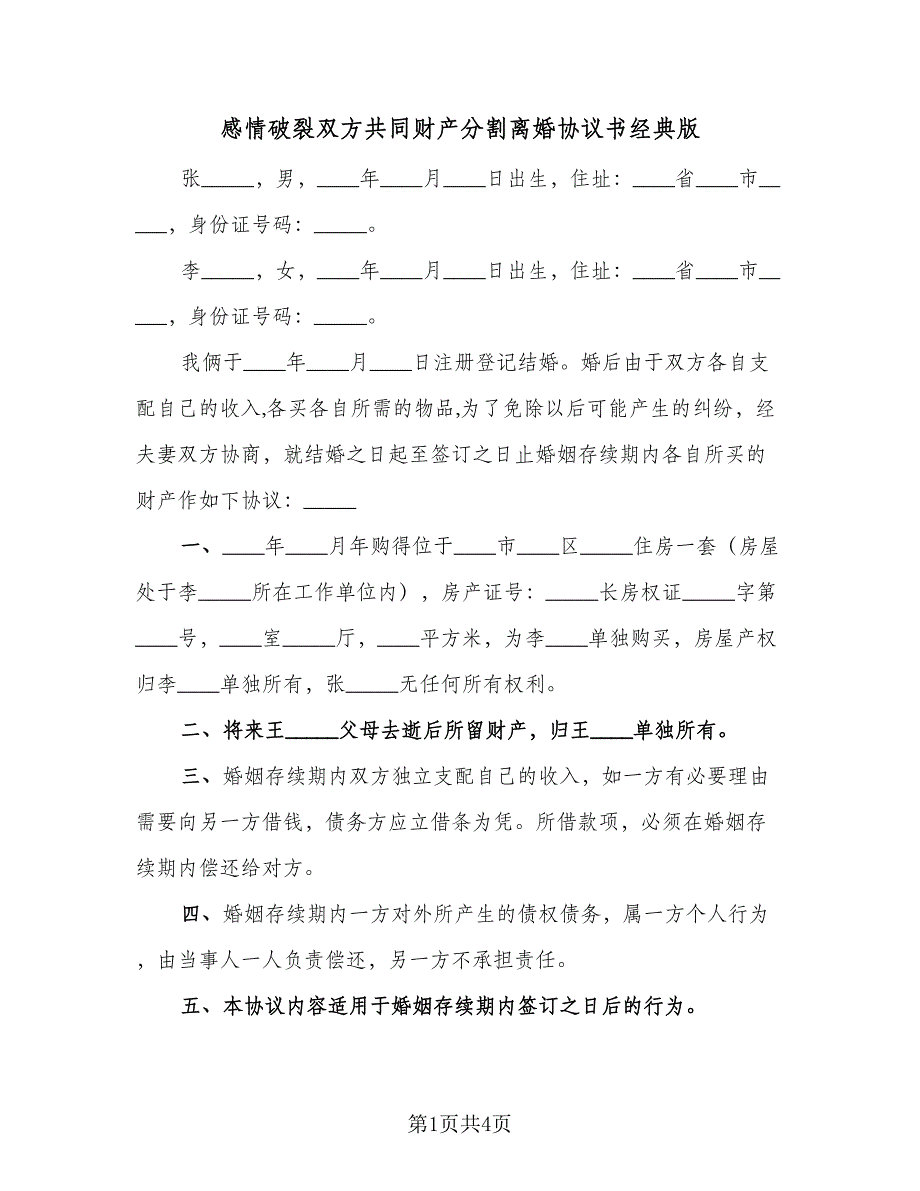 感情破裂双方共同财产分割离婚协议书经典版
张_____，男，____年____月____日出生，住址：____省____市__
___，身份证号码：_____。
李_____，女，____年____月____日出生，住址：____省____市__
___，身份证号码：_____。
我俩于____年____月____日注册登记结婚。婚后由于双方各自支
配自己的收入,各买各自所需的物品,为了免除以后可能产生的纠纷，经
夫妻双方协商，就结婚之日起至签订之日止婚姻存续期内各自所买的
财产作如下协议：_____
一、____年____月年购得位于____市____区_____住房一套（房屋
处于李_____所在工作单位内），房产证号：_____长房权证_____字第
____号，____室_____厅，____平方米，为李____单独购买，房屋产权
归李____单独所有，张_____无任何所有权利。
二、将来王_____父母去逝后所留财产，归王____单独所有。
三、婚姻存续期内双方独立支配自己的收入，如一方有必要理由
需要向另一方借钱，债务方应立借条为凭。所借款项，必须在婚姻存
续期内偿还给对方。
四、婚姻存续期内一方对外所产生的债权债务，属一方个人行为
，由当事人一人负责偿还，另一方不承担责任。
五、本协议内容适用于婚姻存续期内签订之日后的行为。
第1页共4页